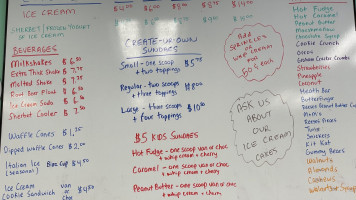 ICE CREAM
SHERBET | FROZEN YOGURT
OR ICE CREAM
BEVERAGES
Milkshakes $6.50
Extra Thick Shake $7.50
Malted Shake $7.50
Root Beer Float $6.50
Ice Cream Soda $6.50
Sherbet Cooler $7.50
Waffle Cones $1.25
Dipped Waffle Cones $2.00
Italian Ice 8oz cup $4.50
(SEASONAL)
Ice Cream
Cookie Sandwich
CREATE-UR-OWN
SUNDAES
Small - one scoop $5.75
+ two toppings
Regular - two scoops $8.00
+ three toppings
Large - three scoops
+ four toppings
$5 KIDS SUNDAES
Hot Fudge - one scoop van or choc
+ whip cream + cherry
Caramel - one scoop van or choc
+ whip cream + cherry
Peanut Butter - one scoop van or choc
+ whip cream + cherry
Add
SPRINKLES
OR
WHIP CREAM
FOR
50¢ each
ASK US
ABOUT
OUR
ICE CREAM
CAKES
Hot Fudge
Hot Caramel
Peanut Butter
Marshmallow
Chocolate Syrup
Cookie Crunch
Oreos
Graham Cracker Crumbs
Strawberries
Pineapple
Coconut
Heath Bar
Butterfinger
Reese's Peanut Butter Cup
M+M's
Gummy Bears
Twix
Snickers
Kit Kat
Gummy
Walnuts
Almonds
Cashews